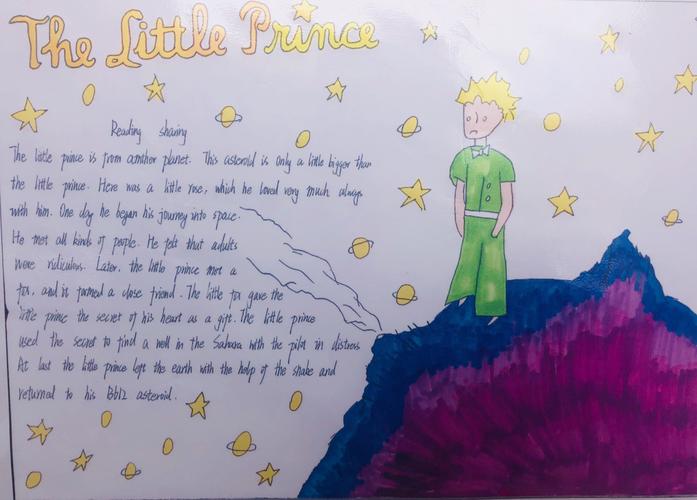 The Little Prince
Reading sharing
The little prince is from another planet. This asteroid is only a little bigger than
the little prince. Here was a little rose, which he loved very much always
with him. One day he began his journey into space.
He met all kinds of people. He felt that adults
were ridiculous. Later, the little prince met a
fox, and it formed a close friend. The little fox gave the
little prince the secret of his heart as a gift. The little prince
used the secret to find a well in the Sahara with the pilot in distress
At last the little prince left the earth with the help of the snake and
returned to his B612 asteroid.